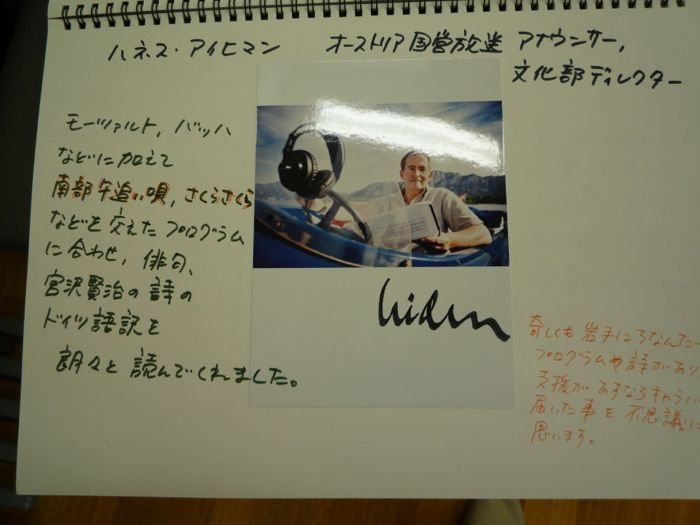 ハネス・アイヒマン
オーストリア国営放送 アナウンサー,
文化部ディレクター
モーツァルト, バッハ
などに加えて
南部牛追い唄, さくらさくら
などを交えたプログラム
に合わせ, 俳句、
宮沢賢治の詩の
ドイツ語訳を
朗々と 読んでくれました。
奇しくも岩手にちなんだ
プログラムや詩があり
支援があすなろキャラバ
届いた事を不思議に
思います。